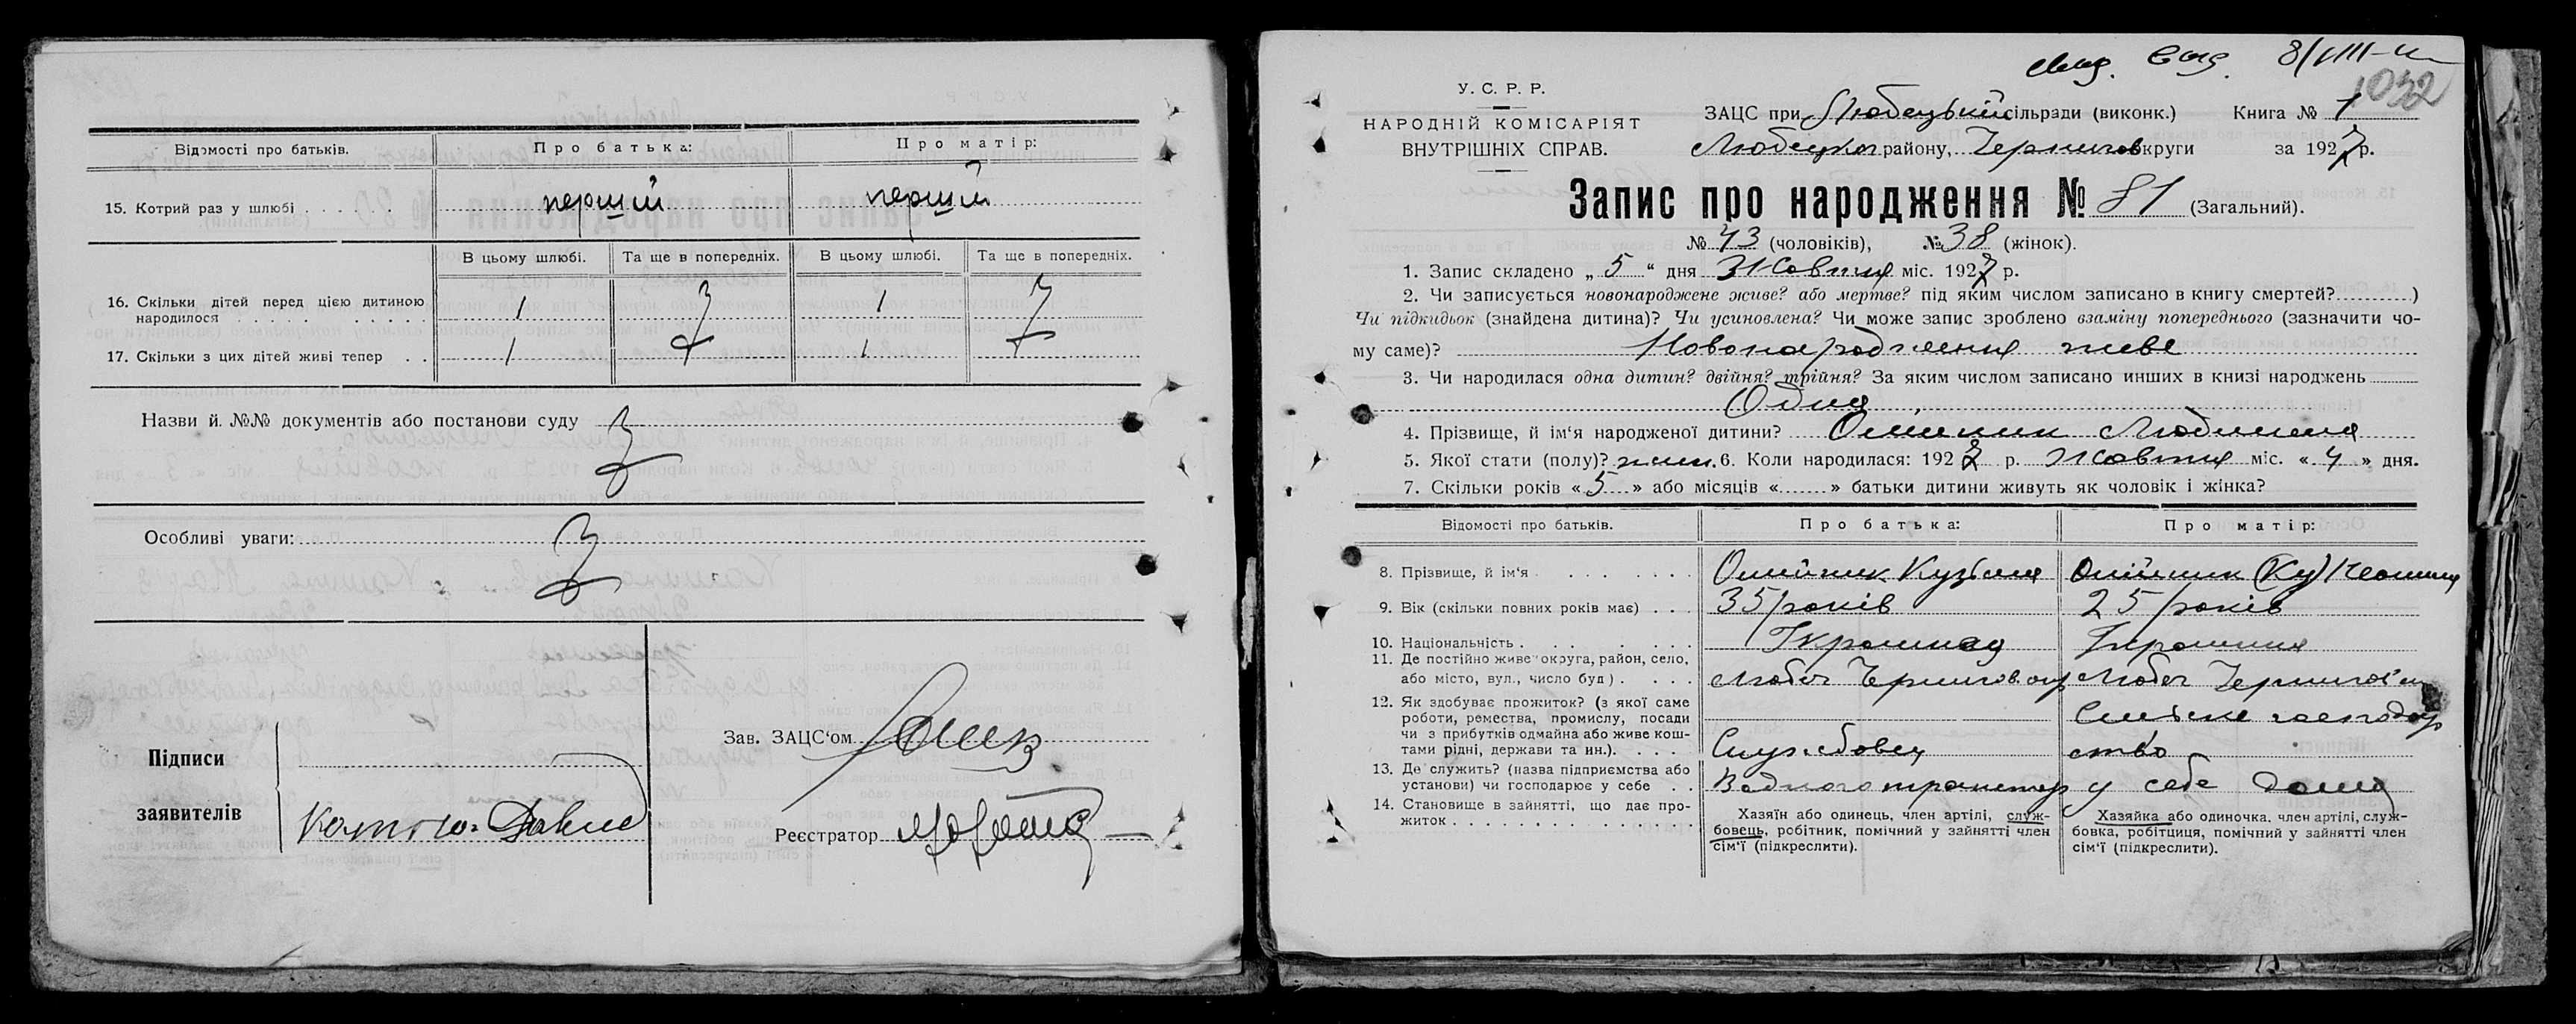 Відомості про батьків.
Про батька:
Про матір:
15. Котрий раз у шлюбі . . . . . перший перший
В цьому шлюбі. Та ще в попередніх. В цьому шлюбі. Та ще в попередніх.
16. Скільки дітей перед цією дитиною
народилося . . . . . . . . . 1 1
17. Скільки з цих дітей живі тепер . . 1 1
Назви й. №№ документів або постанови суду
Особливі уваги:
Підписи
заявителів
Зав. ЗАЦС'ом
Реєстратор
8/VIII-
1032
У. С. Р. Р.
НАРОДНІЙ КОМІСАРІЯТ
ВНУТРІШНІХ СПРАВ.
ЗАЦС при Любецький сільради (виконк.) Книга № 1
Любецког району, Чернигов округи за 1927 р.
Запис про народження № 81 (Загальний).
№ 43 (чоловіків), № 38 (жінок).
1. Запис складено „ 5 “ дня Жовтня міс. 1927 р.
2. Чи записується новонароджене живе? або мертве? під яким числом записано в книгу смертей?..........)
Чи підкидьок (знайдена дитина)? Чи усиновлена? Чи може запис зроблено взаміну попереднього (зазначити чо-
му саме)? Новонародження живе
3. Чи народилася одна дитин? двійня? трійня? За яким числом записано инших в книзі народжень
Одна
4. Прізвище, й ім'я народженої дитини? Олійник Людмила
5. Якої стати (полу)? жин. 6. Коли народилася: 1927 р. Жовтня міс. « 4 » дня.
7. Скільки років « 5 » або місяців «.......» батьки дитини живуть як чоловік і жінка?
Відомості про батьків.
Про батька:
Про матір:
8. Прізвище, й ім'я . . . . . . . Олійник Кузьма Олійник (Ку)
9. Вік (скільки повних років має) . . . 35 років 25 років
10. Національність . . . . . . .
11. Де постійно живе округа, район, село,
або місто, вул., число буд) . . . . Любеч Чернигов. окр Любеч Чернигов
12. Як здобуває прожиток? (з якої саме
роботи, ремества, промислу, посади
чи з прибутків одмайна або живе кош-
тами рідні, держави та ин.). . . . . Службовец Сильске господар
ство
13. Де служить? (назва підприємства або
установи) чи господарює у себе . . Водного транспор у себе дома
14. Становище в зайнятті, що дає про-
житок . . . . . . . . . . . . . .
Хазяїн або одинець, член артілі, служ-
бовець, робітник, помічний у зайнятті член
сім'ї (підкреслити).
Хазяйка або одиночка. член артілі, служ-
бовка, робітниця, помічний у зайнятті член
сім'ї (підкреслити).